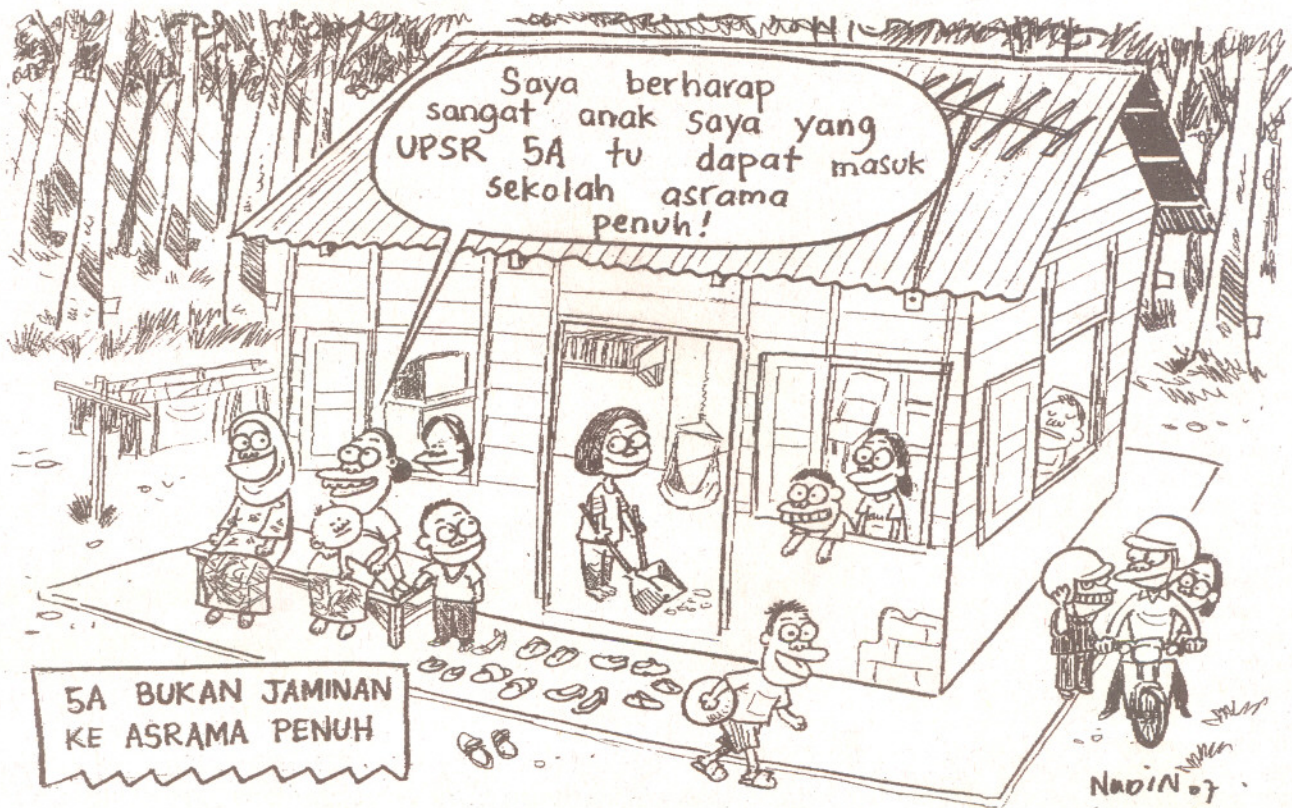 Saya berharap
sangat anak saya yang
UPSR 5A tu dapat masuk
sekolah asrama
penuh!
5A BUKAN JAMINAN
KE ASRAMA PENUH
NUDIN 07